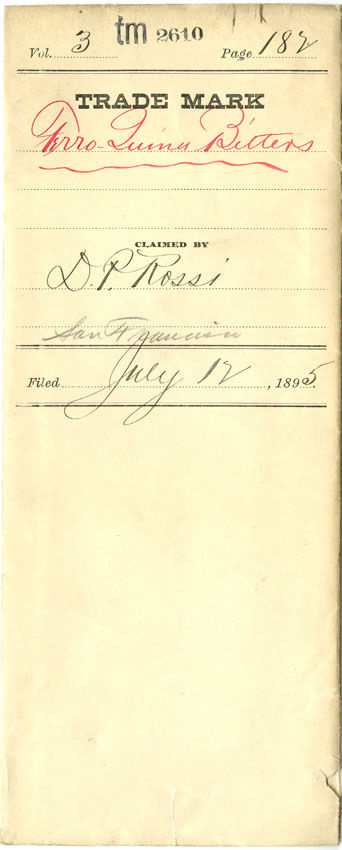 Vol. 3 tm 2610 Page 182
TRADE MARK
Ferro-Quina Bitters
CLAIMED BY
D. P. Rossi
San Francisco
Filed July 12, 1895.